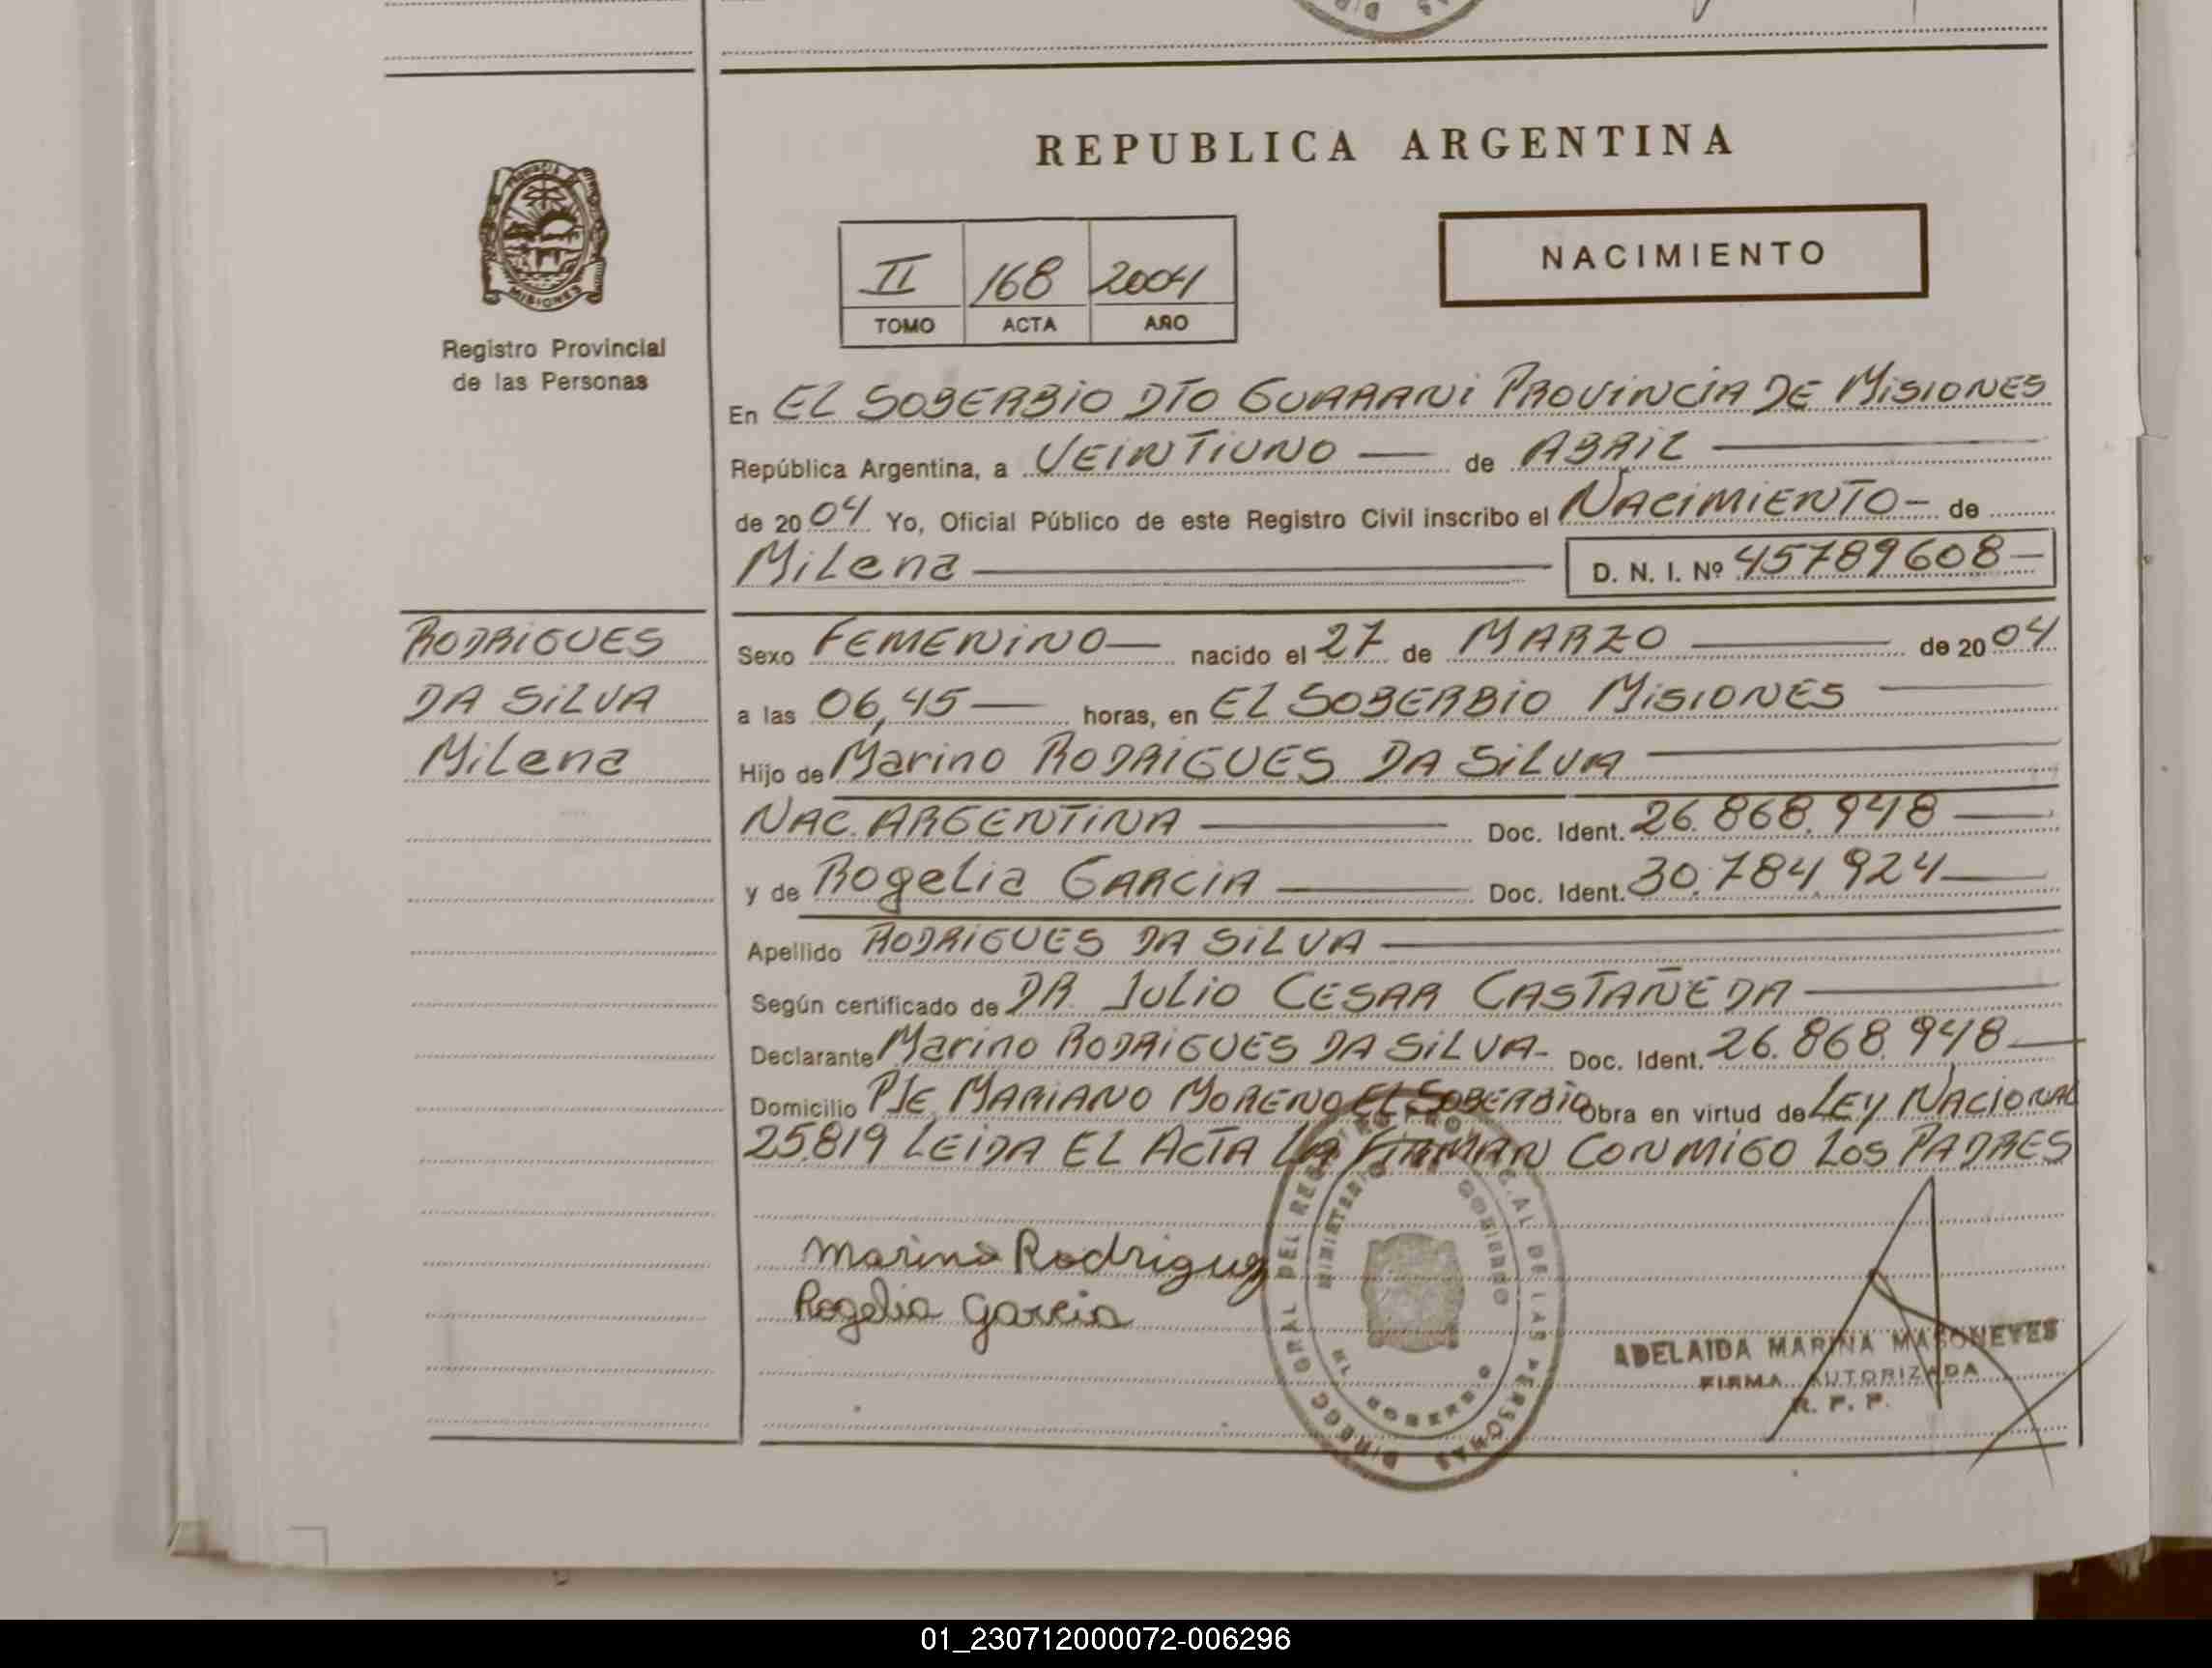 REPUBLICA ARGENTINA
PROVINCIA DE
MISIONES
Registro Provincial
de las Personas
II 168 2004
TOMO ACTA AÑO
NACIMIENTO
En EL SOBERBIO DTO GUARANI PROVINCIA DE MISIONES
República Argentina, a VEINTIUNO — de ABRIL —
de 2004 Yo, Oficial Público de este Registro Civil inscribo el NACIMIENTO - de
Milena — D. N. I. Nº 45789608 —
RODRIGUES
DA SILVA
Milena
Sexo FEMENINO — nacido el 27 de MARZO — de 2004
a las 06,45 — horas, en EL SOBERBIO MISIONES —
Hijo de Marino RODRIGUES DA SILVA —
NAC. ARGENTINA — Doc. Ident. 26.868.948 —
y de Rogelia GARCIA — Doc. Ident. 30.784.924 —
Apellido RODRIGUES DA SILVA —
Según certificado de DR. JULIO CESAR CASTAÑEDA —
Declarante Marino RODRIGUES DA SILVA - Doc. Ident. 26.868.948 —
Domicilio PJE. MARIANO MORENO EL SOBERBIO Obra en virtud de LEY NACIONAL
25.819 LEIDA EL ACTA LA FIRMAN CONMIGO LOS PADRES
Marino Rodrigues
Rogelia Garcia
DIRECC. GRAL. DEL REGISTRO PROVINCIAL DE LAS PERSONAS
MINISTERIO GOBIERNO
EL SOBERBIO
ADELAIDA MARINA MASONEYES
FIRMA AUTORIZADA
R. P. P.
01_230712000072-006296